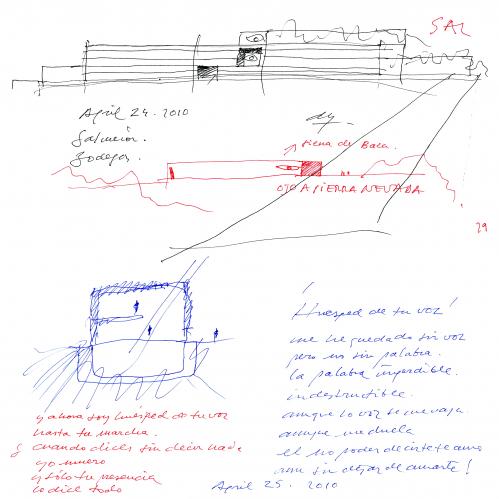 SAL
April 24. 2010
Salmerón.
Bodegas.
Sierra de Baza.
OJO A SIERRA NEVADA
29
¡Huésped de tu voz!
me he quedado sin voz
pero no sin palabra.
la palabra imperdible.
indestructible.
aunque la voz se me vaya.
aunque me duela
el no poder decirte amor
amor sin dejar de amarte!
April 25. 2010
y ahora soy huésped de tu voz
hasta tu marcha.
y cuando dices sin decir nada
yo muero
y sólo tu presencia
lo dice todo